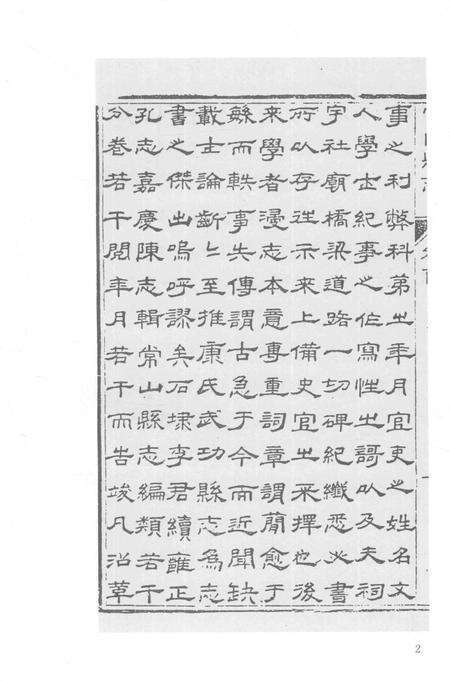 事之利弊科第之年月宜吏之姓名文
人學士紀事之作寫性之謌以及夫祠
宇社廟橋梁道路一切碑紀纖悉必書
所以存往示來上備史官之采擇也後
來學者漫志本意專重詞章謂簡愈于
緐而軼事失傳謂古急于今而近聞缺
載士論齗〻至推康氏武功縣志為志
書之傑出嗚呼謬矣石埭李君續雍正
孔志嘉慶陳志輯常山縣志編類若干
分卷若干閱年月若干而告竣凡沿革
2